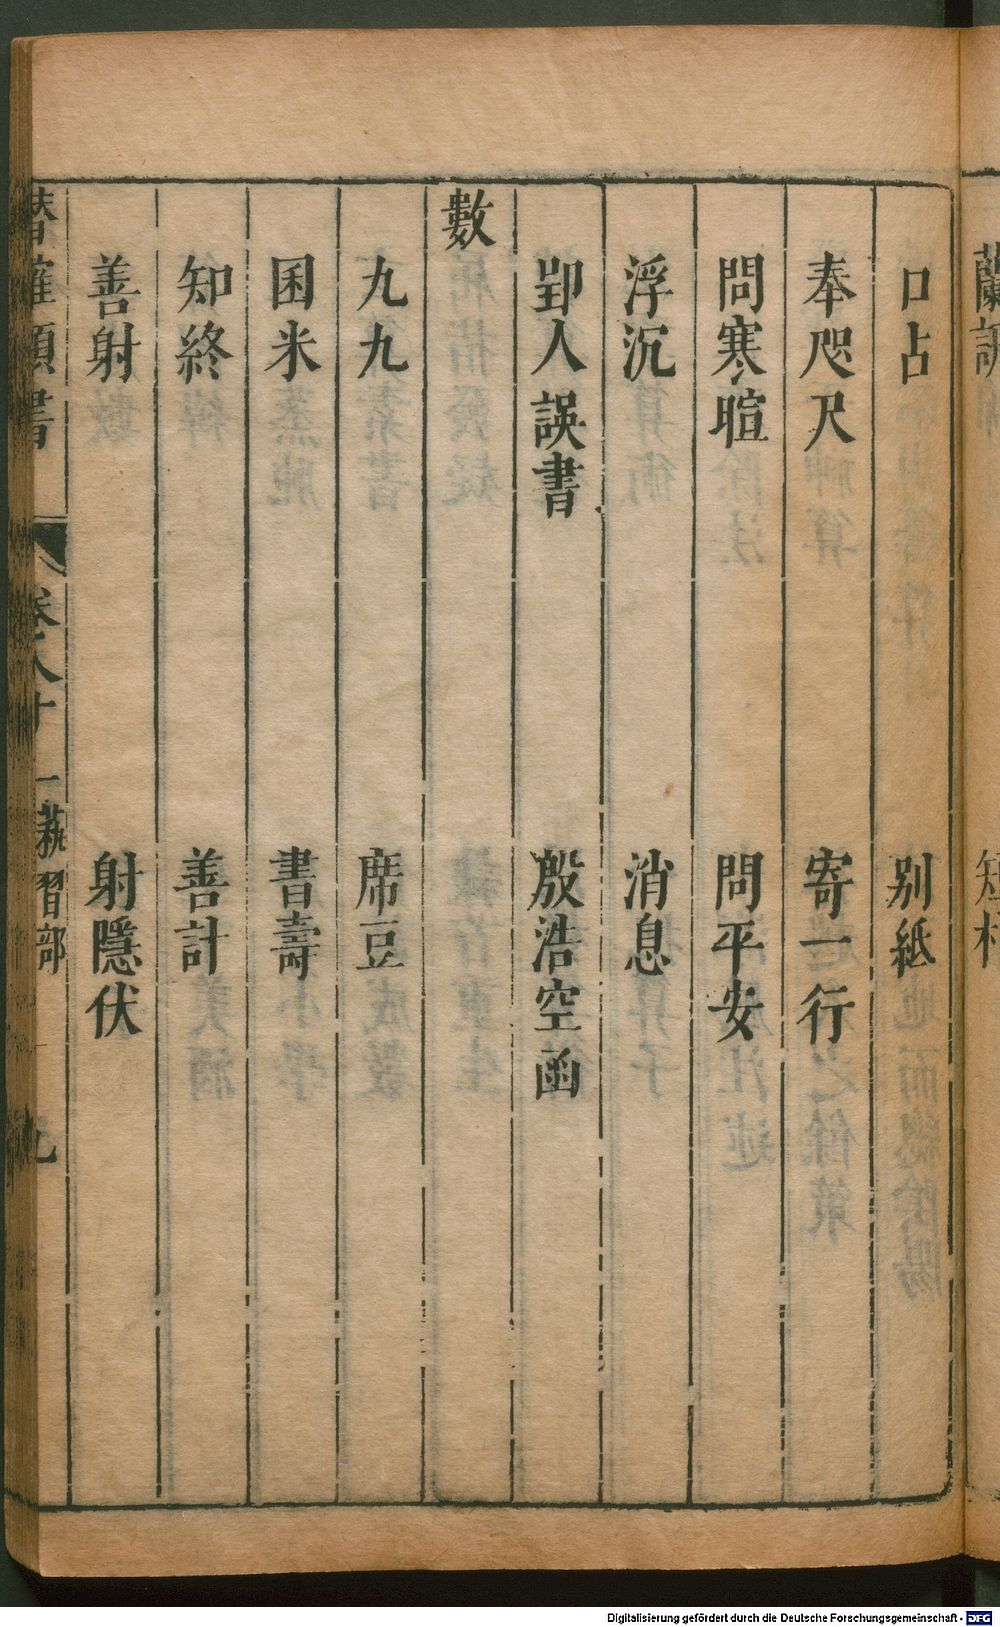 口占　別紙
奉咫尺　寄一行
問寒暄　問平安
浮沉　消息
郢人誤書　殷浩空函
數
九九　席豆
囷米　書壽
知終　善計
善射　射隱伏
潛確類書　卷八十一　蓺習部　九
Digitalisierung gefördert durch die Deutsche Forschungsgemeinschaft - DFG